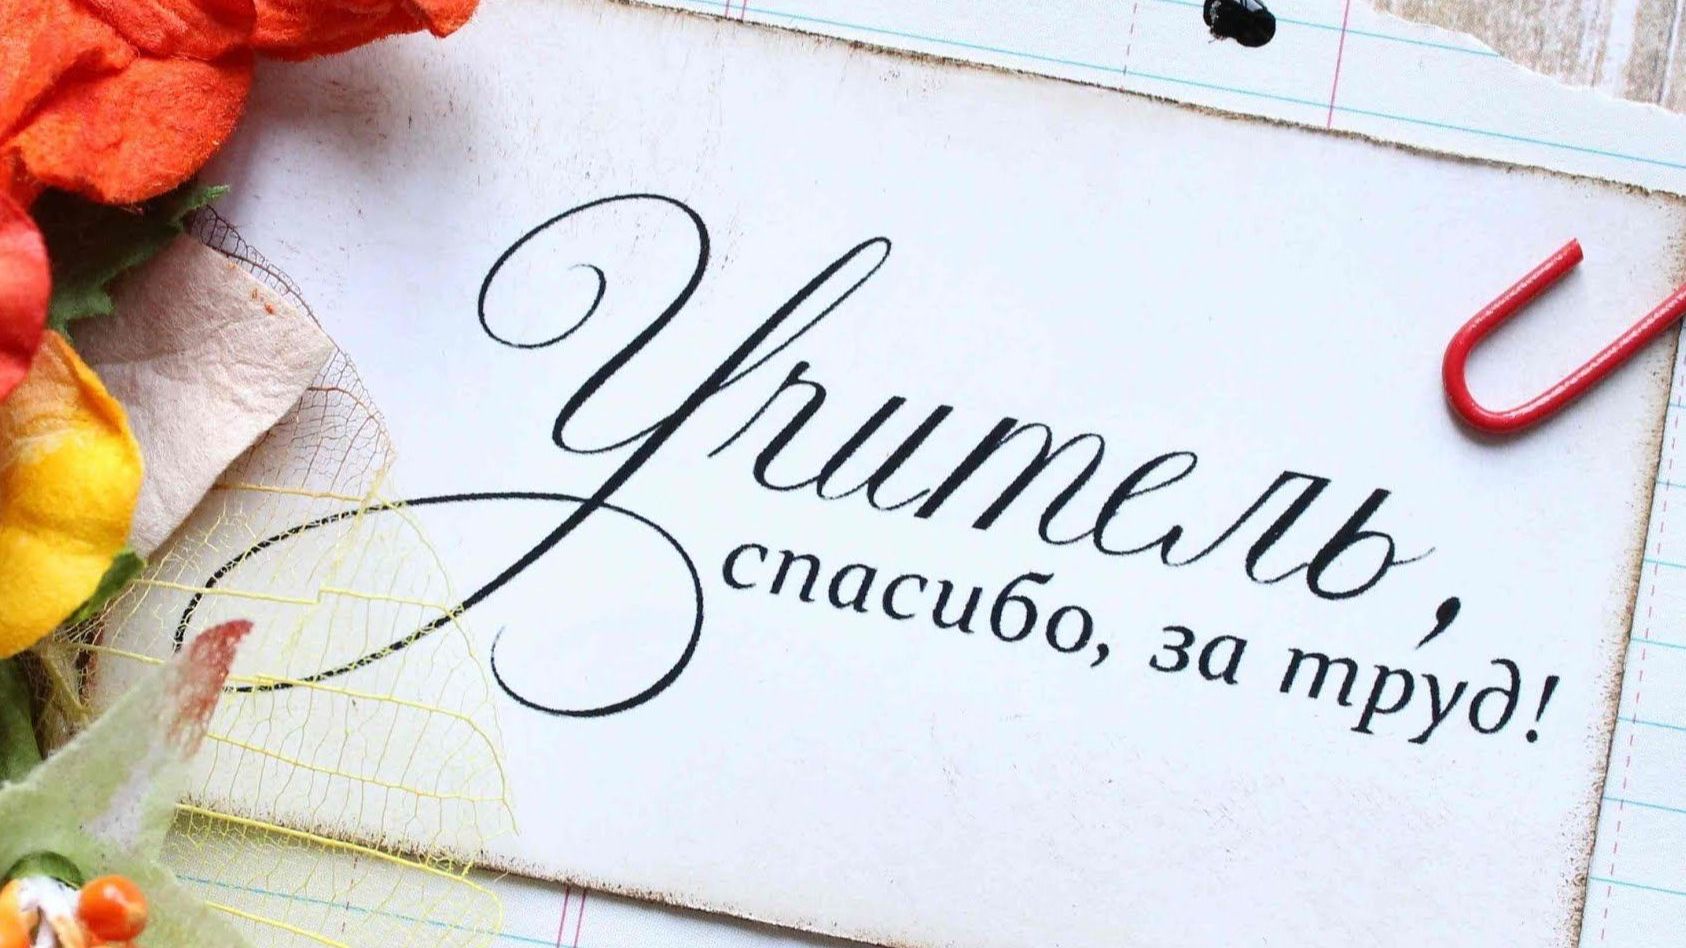 Учитель,
спасибо, за труд!